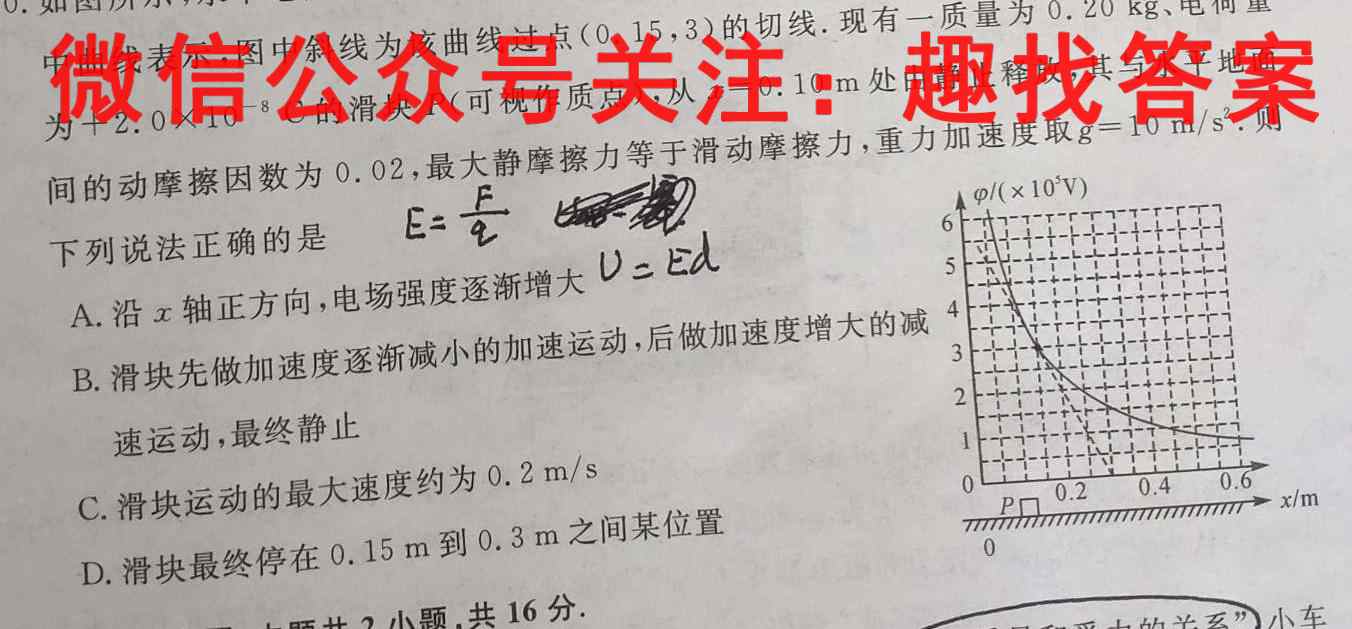 0. 如图所示
中曲线表示,图中斜线为该曲线过点(0.15,3)的切线.现有一质量为0.20 kg、电荷量
微信公众号关注:趣找答案
为+2.0×10⁻⁸ C的滑块P(可视作质点),从x=0.10 m处由静止释放,其与水平地面
间的动摩擦因数为0.02,最大静摩擦力等于滑动摩擦力,重力加速度取g=10 m/s².则
下列说法正确的是
E=F/q
U=Ed
A. 沿x轴正方向,电场强度逐渐增大
B. 滑块先做加速度逐渐减小的加速运动,后做加速度增大的减
速运动,最终静止
C. 滑块运动的最大速度约为0.2 m/s
D. 滑块最终停在0.15 m到0.3 m之间某位置
φ/(×10⁵V)
6
5
4
3
2
1
0 0.2 0.4 0.6
P x/m
0
2小题,共16分.
的关系”)小车